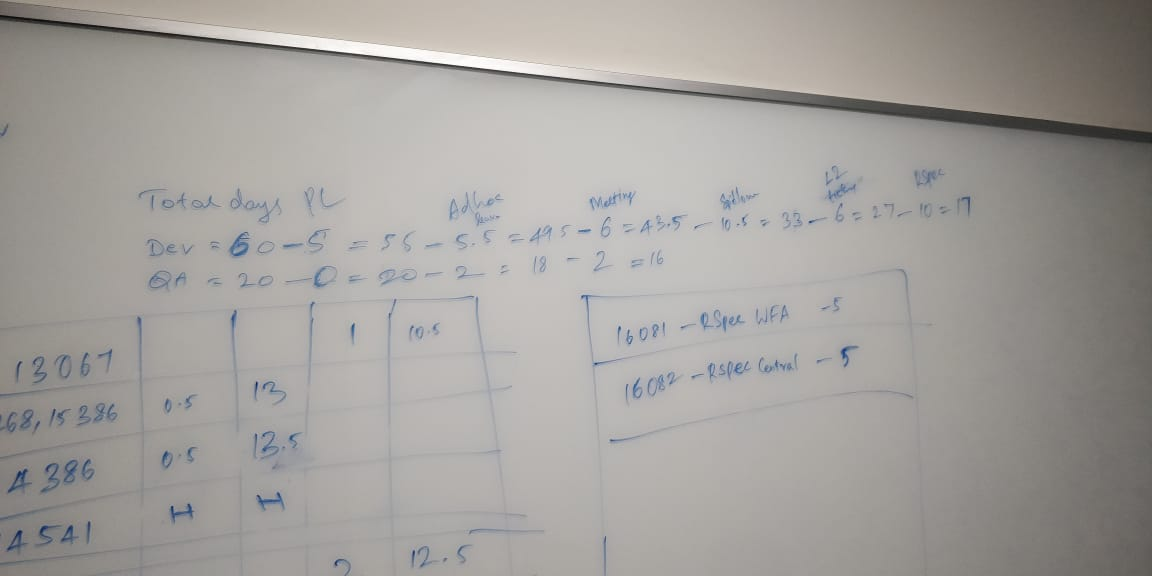 Total days PL
Adhoc
Meeting
L2
RSpec
Dev = 60-5 = 55 - 5.5 = 49.5 - 6 = 43.5 - 10.5 = 33 - 6 = 27 - 10 = 17
QA = 20 - 0 = 20 - 2 = 18 - 2 = 16
13067 1 10.5
68, 15386 0.5 13
4386 0.5 13.5
4541 H H
2 12.5
16081 - RSpec WFA - 5
16082 - RSpec Central - 5